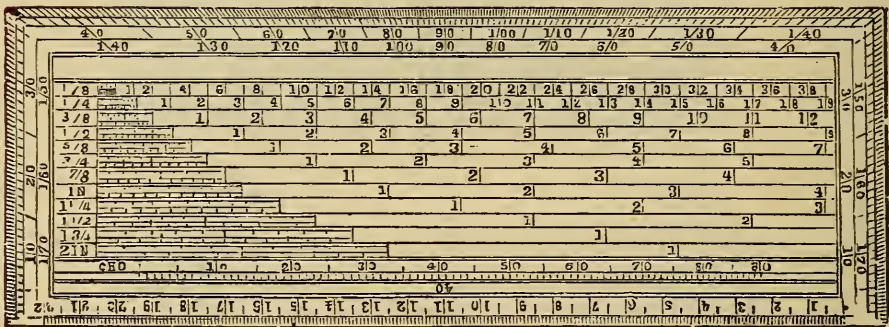 4|0 5|0 6|0 7|0 8|0 9|0 1/00 1/10 1/20 1/30 1/40
1\40 1\30 1\20 1\10 1\00 9\0 8\0 7\0 6\0 5\0 4\0
1/8 2 4 6 8 10 12 14 16 18 20 22 24 26 28 30 32 34 36 38
1/4 1 2 3 4 5 6 7 8 9 10 11 12 13 14 15 16 17 18 19
3/8 1 2 3 4 5 6 7 8 9 10 11 12
1/2 1 2 3 4 5 6 7 8 9
5/8 1 2 3 4 5 6 7
3/4 1 2 3 4 5
7/8 1 2 3 4
1IN 1 2 3 4
1 1/4 1 2 3
1 1/2 1 2
1 3/4 1
2IN 1
CHO 1|0 2|0 3|0 4|0 5|0 6|0 7|0 8|0 9|0
40
22 21 20 19 18 17 16 15 14 13 12 11 10 9 8 7 6 5 4 3 2 1
3/0 1/50
2/0 1/60
1/0 1/70
3|0 150
2|0 160
1|0 170